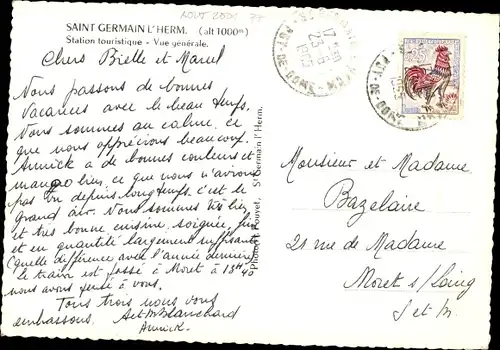 AOUT 2005
SAINT GERMAIN L'HERM. (alt 1000m)
Station touristique - Vue générale.
Chers Bielle et Marcel
Nous passons de bonnes
vacances avec le beau temps.
Nous sommes au calme, ce
que nous apprécions beaucoup.
Annick a de bonnes couleurs et
mange bien, ce que nous n'avions
pas vu depuis longtemps. c'est le
grand air. Nous sommes très bien
et très bonne cuisine, soignée, fine
et en quantité largement suffisante
(quelle différence avec l'année dernière)
le train est passé à Moret à 13h40
nous avons pensé à vous.
Tous trois nous vous
embrassons. Blanchard
Annick.
Photocrit Pouyet, St Germain l'Herm.
17H
23-8
1963
PUY-DE-DOME
PUY-DE-DOME
Monsieur et Madame
Bazelaire
21 rue de Madame
Moret s/Loing
S et M